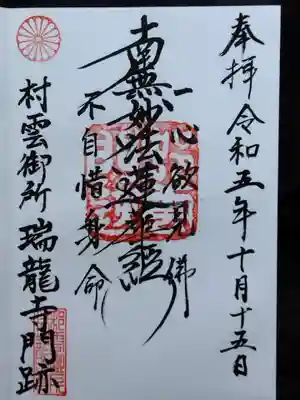 奉拝 令和五年十月十五日
一心欲見佛
南無妙法蓮華経
不自惜身命
村雲御所 瑞龍寺門跡